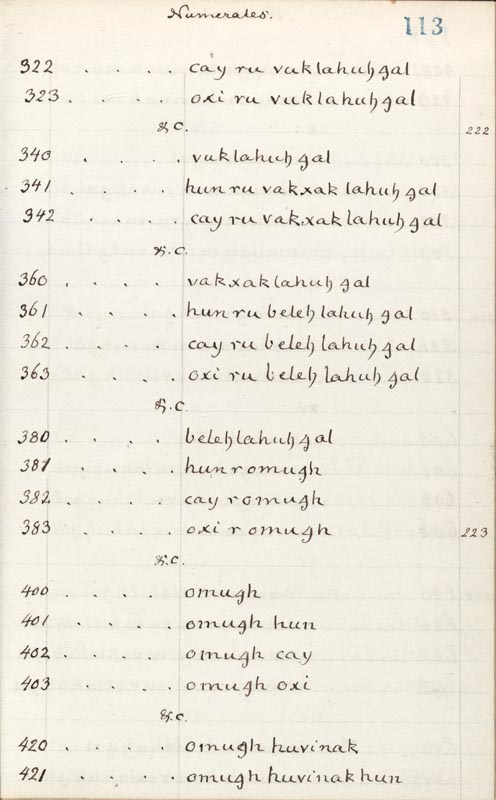 Numerales.
113
322 . . . cay ru vuklahuh gal
323 . . . . oxi ru vuklahuh gal
&c.
222
340 . . . . vuklahuh gal
341 . . . . hun ru vakxak lahuh gal
342 . . . . cay ru vakxak lahuh gal
&c.
360 . . . . vakxaklahuh gal
361 . . . . hun ru beleh lahuh gal
362 . . . . cay ru beleh lahuh gal
363 . . . . oxi ru beleh lahuh gal
&c.
380 . . . . belehlahuh gal
381 . . . . hun r omugh
382 . . . . cay r omugh
383 . . . . oxi r omugh
223
&c.
400 . . . . omugh
401 . . . . omugh hun
402 . . . . omugh cay
403 . . . . omugh oxi
&c.
420 . . . . omugh huvinak
421 . . . . omugh huvinak hun